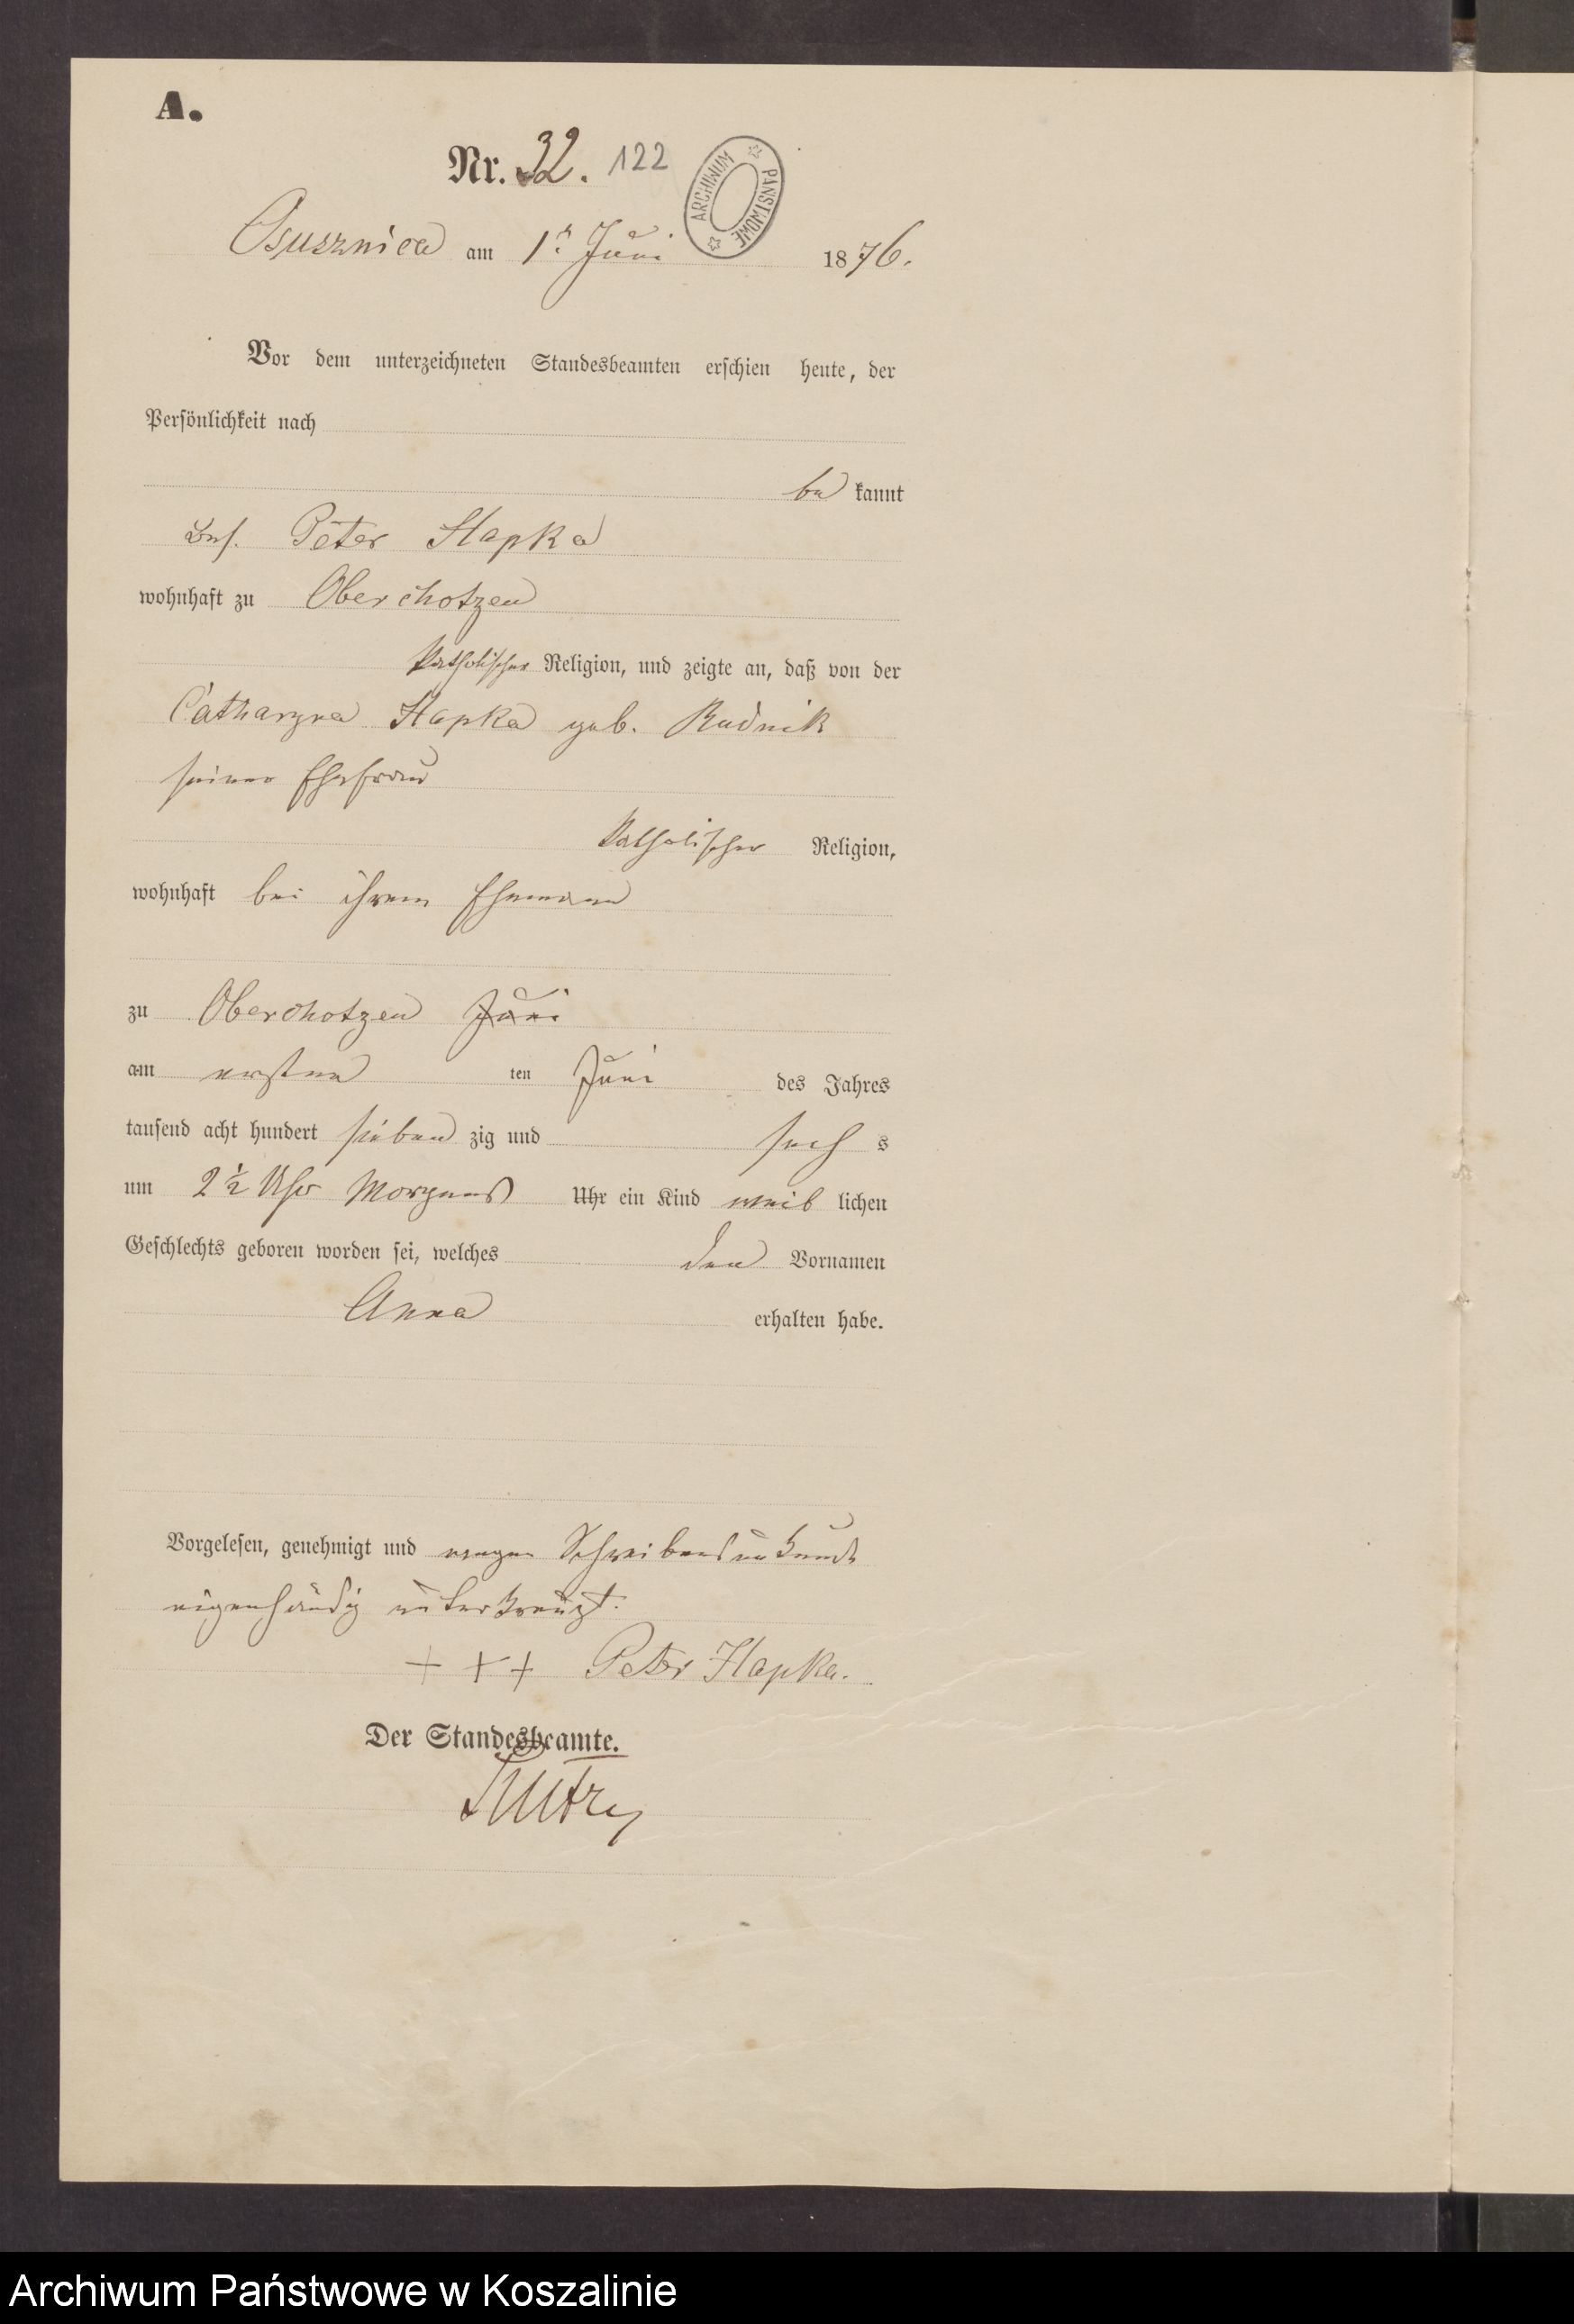 A.
Nr. 32. 122
ARCHIWUM PAŃSTWOWE
Osusznica am 1t Juni 1876.
Vor dem unterzeichneten Standesbeamten erschien heute, der
Persönlichkeit nach
be kannt
Peter Hapka
wohnhaft zu Oberchotzen
katholischer Religion, und zeigte an, daß von der
Catharyna Hapka geb. Rudnik
seiner Ehefrau
katholischer Religion,
wohnhaft bei ihrem Ehemann
zu Oberchotzen Juni
am ersten ten Juni des Jahres
tausend acht hundert sieben zig und sech s
um 2½ Uhr Morgens Uhr ein Kind weib lichen
Geschlechts geboren worden sei, welches den Vornamen
Anna erhalten habe.
Vorgelesen, genehmigt und wegen Schreibensunkunde
eigenhändig unterkreuzt.
+ + + Peter Hapka.
Der Standesbeamte.
Archiwum Państwowe w Koszalinie